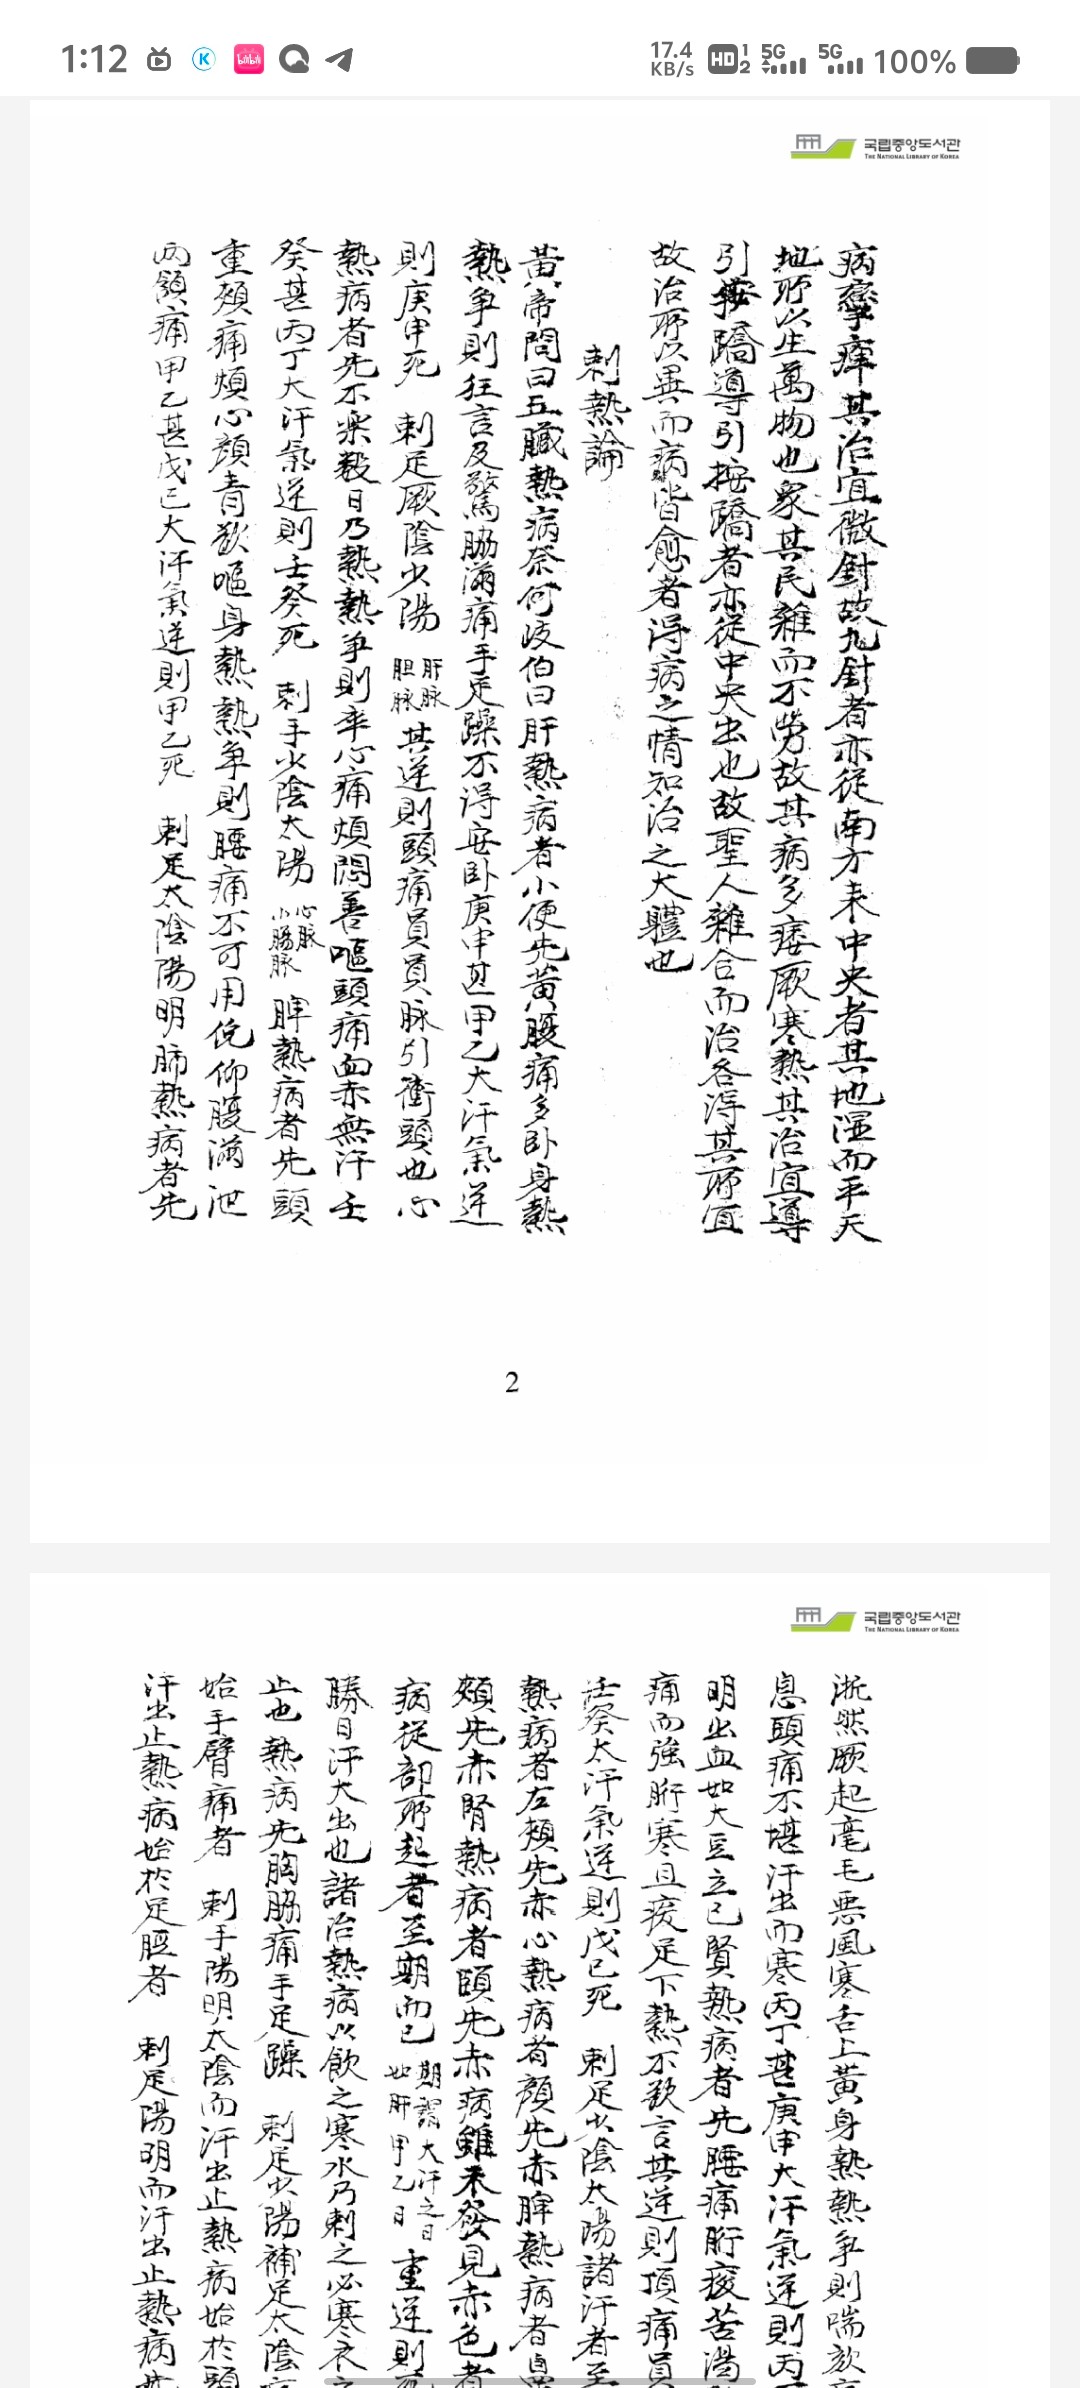 1:12
17.4
KB/s
HD 1 2
5G
5G
100%
국립중앙도서관
THE NATIONAL LIBRARY OF KOREA
病攣痺其治宜微針故九針者亦從南方來中央者其地湿而平天
地所以生萬物也衆其民雜而不劳故其病多痿厥寒熱其治宜導
引按蹻導引按蹻者亦從中央出也故聖人雜合而治各淂其所宜
故治所以異而病皆愈者淂病之情知治之大軆也
刺熱論
黃帝問曰五臟熱病奈何岐伯曰肝熱病者小便先黃腹痛多卧身熱
熱争則狂言及驚脇滿痛手足躁不淂安卧庚申甚甲乙大汗氣逆
則庚申死 刺足厥陰少陽 肝脉胆脉 其逆則頭痛員員脉引衝頭也心
熱病者先不楽数日乃熱熱争則卒心痛煩悶善嘔頭痛面赤無汗壬
癸甚丙丁大汗氣逆則壬癸死 刺手少陰太陽 心脉小腸脉 脾熱病者先頭
重頰痛煩心顔青欲嘔身熱熱争則腰痛不可用俛仰腹滿泄
両頷痛甲乙甚戊己大汗氣逆則甲乙死 刺足太陰陽明肺熱病者先
2
국립중앙도서관
THE NATIONAL LIBRARY OF KOREA
淅然厥起毫毛悪風寒舌上黃身熱熱争則喘欬
息頭痛不堪汗出而寒丙丁甚庚申大汗氣逆則丙
明出血如大豆立已賢熱病者先腰痛胻痠苦渴
痛而強胻寒且痠足下熱不欲言其逆則項痛員
壬癸大汗氣逆則戊己死 刺足少陰太陽諸汗者至
熱病者左頰先赤心熱病者顔先赤脾熱病者鼻
頰先赤腎熱病者頤先赤病雖未發見赤色者
病從部所起者至期而已 期謂大汗之日也肝甲乙日 重逆則死
勝日汗大出也諸治熱病以飲之寒水乃刺之必寒衣之
止也熱病先胸脇痛手足躁 刺足少陽補足太陰
始手臂痛者 刺手陽明太陰而汗出止熱病始於頭
汗出止熱病始於足脛者 刺足陽明而汗出止熱病